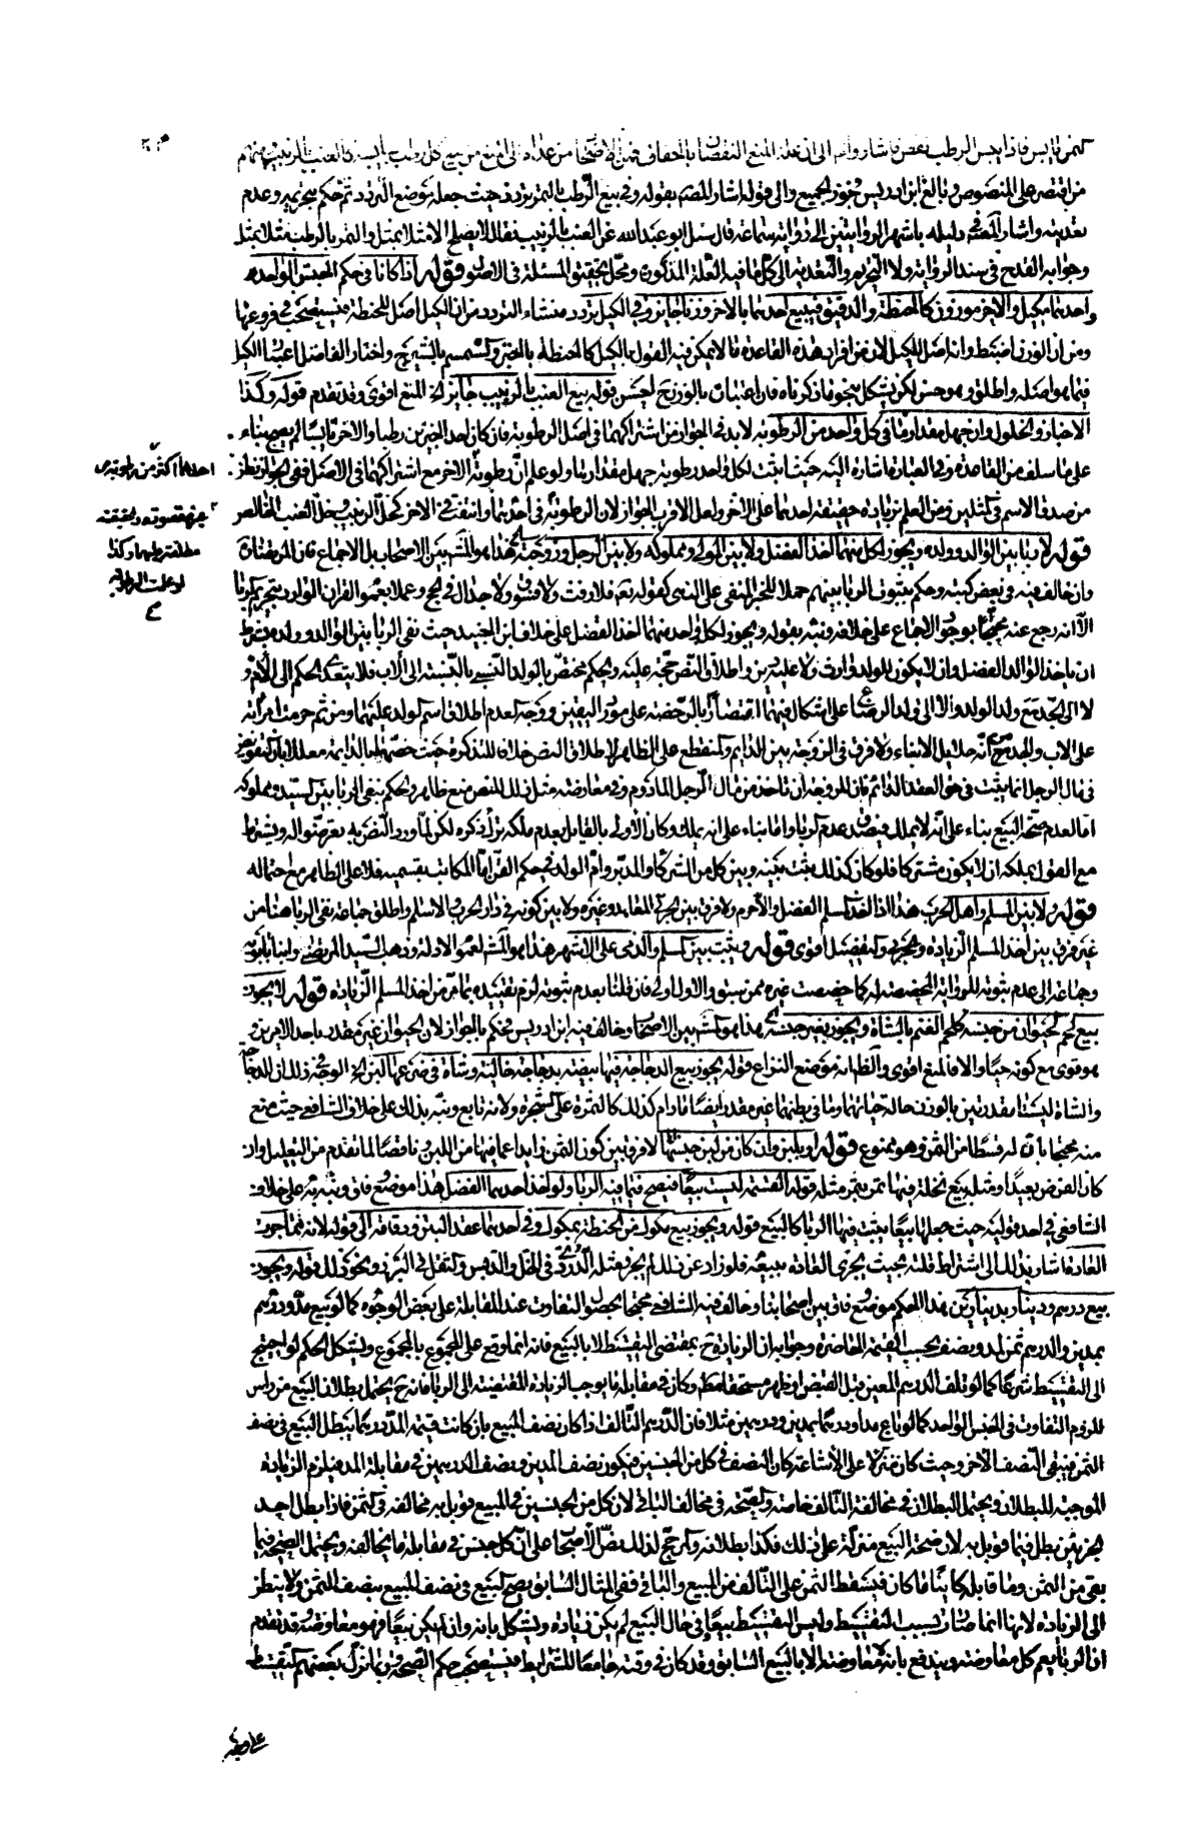 من اقتصر على المنصوص وبالغ ابن ادريس فجوز الجميع والى قوله اشار المصنف بقوله وفي بيع الرطب بالتمر تردد حيث جعله موضع التردد ثم حكم بتحريمه وعدم
وجوابه القدح في سند الرواية ولا التحريم والتعدية الى كل ما فيه العلة المذكورة ومحل تحقيق المسئلة في الاصول قوله اذا كانا في حكم الجنس الواحد
واحدهما مكيل والآخر موزون كالحنطة والدقيق فبيع احدهما بالآخر وزنا جايز وفي الكيل تردد منشاء التردد من ان الكيل اصل للحنطة فيستصحب في فروعها
ومن ان الوزن اضبط وانه اصل للكيل
بيع العنب بالزبيب جايز الخ المنع اقوى وقد تقدم قوله وكذا
الاخباز والخلول وان جهل مقدار ما في كل واحد من الرطوبة لا بد في الجواز من اشتراكهما في اصل الرطوبة فلو كان احد الخبزين رطبا والآخر يابسا لم يصح بناء
على ما سلف من القاعدة وفي العبارة اشارة اليه حيث اثبت لكل واحد رطوبة جهل مقدارها ولو علم ان رطوبة الآخر مع اشتراكهما في الاصل ففي الجواز نظر
احدهما اكثر من رطوبة
من صدق الاسم في المثلين ومن العلم بزيادة حقيقة احدهما على الآخر ولعل الاقرب الجواز لان الرطوبة في احدهما وانتفت في الآخر كخل الزبيب وخل العنب الخالص
غير مقصودة والحقيقة
مطلقة عليهما وكذا
لو علمت الرطوبة
قوله لا ربا بين الوالد وولده ويجوز لكل منهما اخذ الفضل ولا بين المولى ومملوكه ولا بين الرجل وزوجته هذا هو المشهور بين الاصحاب بل الاجماع فان المرتضى
وان خالف فيه في بعض كتبه وحكم بثبوت الربا بينهم حملا للخبر المنفي على النهي كقوله تعالى فلا رفث ولا فسوق ولا جدال في الحج وعملا بعموم القرآن الوارد بتحريم الربا
الا انه رجع عنه محتجا بوجود الاجماع على خلافه ونبه بقوله ويجوز لكل واحد منهما اخذ الفضل على خلاف ابن الجنيد حيث نفى الربا بين الوالد وولده بشرط
ان ياخذ الوالد الفضل وان لا يكون للولد وارث ولا عليه دين واطلاق النص حجة عليه والحكم مختص بالولد النسبي بالنسبة الى الاب فلا يتعدى الحكم الى الام و
لا الى الجد مع ولد الولد ولا الى ولد الرضاع على اشكال فيهما اقتصارا بالرخصة على مورد اليقين ووجه العدم اطلاق اسم الولد عليهما ومن ثم حرمت امرأته
على الاب والجد مع انه حلائل الابناء ولا فرق في الزوجة بين الدايم والمنقطع على الظاهر لاطلاق النص خلافا للتذكرة حيث خصها بالدايمة معللا بان التفويض
في مال الرجل انما يثبت في حق العقد الدائم فان للزوجة ان تاخذ من مال الرجل المادوم وفي معارضة مثل ذلك للنص منع ظاهر والحكم بنفي الربا بين السيد ومملوكه
اما لعدم صحة البيع بناء على انه لا يملك فيصدق عدم الربا واما بناء على انه يملك وكان الأولى بالقايل بعدم ملكه ترك ذكره لكن لما ورد النص به تعرضوا له ويشترط
مع القول بملكه ان لا يكون مشتركا فلو كان كذلك يثبت بينه وبين كل من الشركاء والمدبر وام الولد في حكم القن اما المكاتب بقسميه فلا على الظاهر مع احتماله
قوله ولا بين المسلم واهل الحرب هذا اذا اخذ المسلم الفضل والا حرم ولا فرق بين الحربي المعاهد وغيره ولا بين كونه في دار الحرب والاسلام واطلق جماعة نفي الربا هنا من
غير فرق بين اخذ المسلم الزيادة والحربي والتفصيل اقوى قوله ويثبت بين المسلم والذمي على الاشهر هذا هو المشهور لعموم الادلة وذهب السيد المرتضى وابنا بابويه
وجماعة الى عدم ثبوته للرواية المخصصة له كما خصصت غيره ممن سبق والاول اولى فان قلنا بعدم ثبوته لزم تقييده بما مر من اخذ المسلم الزيادة قوله لا يجوز
بيع لحم الحيوان من جنسه كلحم الغنم بالشاة ويجوز بغير جنسه الخ هذا هو المشهور بين الاصحاب وخالف فيه ابن ادريس فحكم بالجواز لان الحيوان غير مقدر باحد الامرين و
هو قوي مع كونه حيا والا فالمنع اقوى والظاهر انه موضع النزاع قوله يجوز بيع الدجاجة فيها بيضة بدجاجة خالية وشاة في ضرعها لبن الخ الوجه في ذلك ان الدجاجة
والشاة ليستا مقدرتين بالوزن حالة حياتهما وما في بطنهما غير مقدر ايضا ما دام كذلك كالثمرة على الشجرة ولانه تابع ونبه بذلك على خلاف الشافعي حيث منع
منه محتجا بان له قسطا من الثمن وهو ممنوع قوله او بلبن وان كان من لبن جنسها لا فرق بين كون اللبن زايدا عما فيها من اللبن وناقصا لما تقدم من التعليل وان
كان الفرض بعيدا ومثله بيع نخلة فيها تمر بتمر مثله قوله القسمة ليست بيعا فتصح فيما فيه الربا ولو اخذ احدهما الفضل هذا موضع وفاق ونبه به على خلاف
الشافعي في احد قوليه حيث جعلها بيعا يثبت فيها الربا كالبيع قوله ويجوز بيع مكوك من الحنطة بمكوك وفي احدهما عقد التبن ودقاقه الى قوله لانه مما جرت
العادة اشار بذلك الى اشتراط قلته بحيث يجري العادة بمثله فلو زاد عن ذلك لم يجز ومثله الدردي في الخل والدبس والثفل في البزر ونحو ذلك قوله ويجوز
بيع درهم ودينار بدينارين هذا الحكم موضع وفاق بين اصحابنا وخالف فيه الشافعي محتجا بحصول التفاوت عند المقابلة على بعض الوجوه كما لو بيع مد ودرهم
بمدين والدرهم ثمن لمد ونصف بحسب القيمة الحاضرة وجوابه ان الزيادة ح بمقتضى التقسيط لا بالبيع فانه انما وقع على المجموع بالمجموع ويشكل الحكم لو احتيج
الى التقسيط شرعا كما لو تلف الدرهم المعين قبل القبض او ظهر مستحقا مط وكان في مقابله ما يوجب الزيادة المفضية الى الربا فانه ح يحتمل بطلان البيع من راس
للزوم التفاوت في الجنس الواحد كما لو باع مدا ودرهما بمدين ودرهمين مثلا فان الدرهم التالف اذا كان نصف المبيع بان كانت قيمة المد درهما يبطل البيع في نصف
الثمن فيبقى النصف الآخر وحيث كان منزلا على الاشاعة كان النصف في كل من الجنسين فيكون نصف المدين ونصف الدرهمين في مقابلة المد فيلزم الزيادة
الموجبة للبطلان ويحتمل البطلان في مخالف التالف خاصة والصحة في مخالف الباقي لان كل من الجنسين في المبيع قوبل به مخالفه في الثمن فاذا بطل احد
الجزئين بطل فيما قوبل به لان صحة البيع منزلة على ذلك فكذا بطلانه والمرجح لذلك نص الاصحاب على ان كل جنس في مقابلة ما يخالفه ويحتمل الصحة فيما
بقي من الثمن وما قابله كائنا ما كان فيسقط الثمن على التالف من المبيع والباقي ففي المثال السابق يصح البيع في نصف المبيع بنصف الثمن ولا ينظر
الى الزيادة لانها انما صارت بسبب التقسيط وليس التقسيط بيعا وفي حال البيع لم يكن زيادة ويشكل بانه وان لم يكن بيعا فهو معاوضة وقد تقدم
ان الربا يعم كل معاوضة ويندفع بانه لا معاوضة الا بالبيع السابق وقد كان في وقته جامعا للشرايط فيستصحب حكم الصحة وربما نزل بعضهم التقسيط